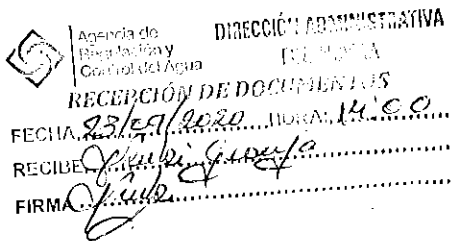 Agencia de
Regulación y
Control del Agua
DIRECCIÓN ADMINISTRATIVA
RECEPCIÓN DE DOCUMENTOS
FECHA 23/09/2020 HORA: 14:00
RECIBE
FIRMA